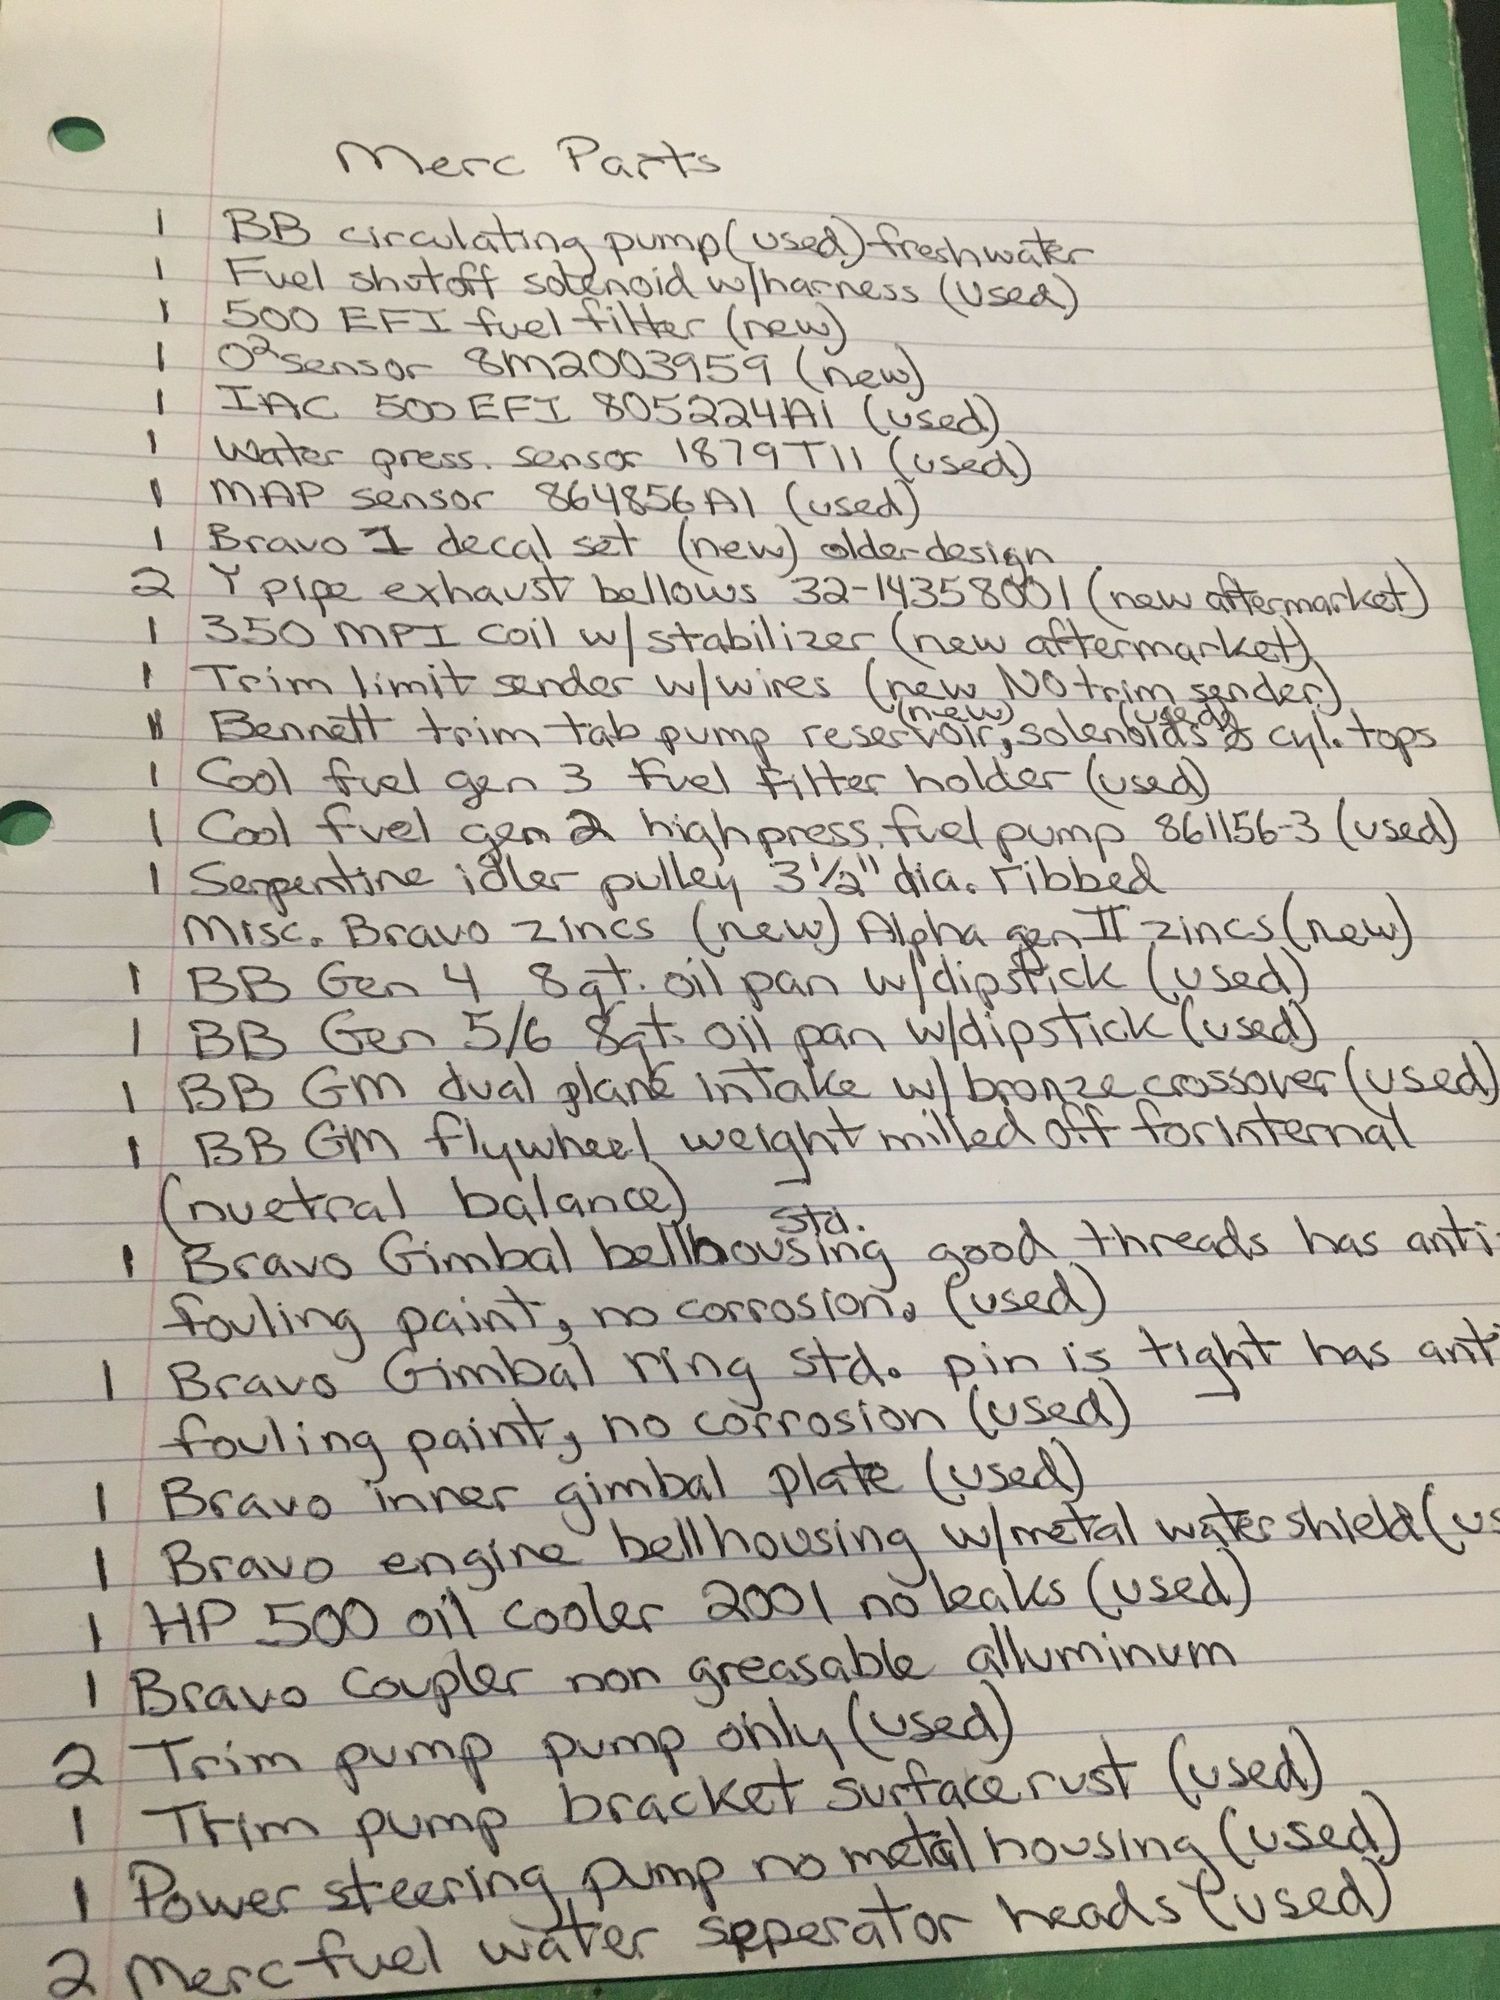 Merc Parts
1 BB circulating pump (used) freshwater
1 Fuel shutoff solenoid w/harness (used)
1 500 EFI fuel filter (new)
1 O² sensor 8M2003959 (new)
1 IAC 500 EFI 805224A1 (used)
1 Water press. sensor 1879T11 (used)
1 MAP sensor 864856A1 (used)
1 Bravo I decal set (new) older design
2 Y pipe exhaust bellows 32-14358001 (new aftermarket)
1 350 MPI coil w/stabilizer (new aftermarket)
1 Trim limit sender w/wires (new NO trim sender)
1 Bennett trim tab pump reservoir (new), solenoids (used) & cyl. tops
1 Cool fuel gen 3 fuel filter holder (used)
1 Cool fuel gen 2 high press. fuel pump 861156-3 (used)
1 Serpentine idler pulley 3 1/2" dia. ribbed
Misc. Bravo zincs (new) Alpha gen II zincs (new)
1 BB Gen 4 8qt. oil pan w/dipstick (used)
1 BB Gen 5/6 8qt. oil pan w/dipstick (used)
1 BB GM dual plane intake w/bronze crossover (used)
1 BB GM flywheel weight milled off for internal
(nuetral balance)
1 Bravo Gimbal bellhousing std. good threads has anti-
fouling paint, no corrosion. (used)
1 Bravo Gimbal ring std. pin is tight has anti
fouling paint, no corrosion (used)
1 Bravo inner gimbal plate (used)
1 Bravo engine bellhousing w/metal water shield (us
1 HP 500 oil cooler 2001 no leaks (used)
1 Bravo coupler non greasable alluminum
2 Trim pump pump only (used)
1 Trim pump bracket surface rust (used)
1 Power steering pump no metal housing (used)
2 Merc fuel water seperator heads (used)